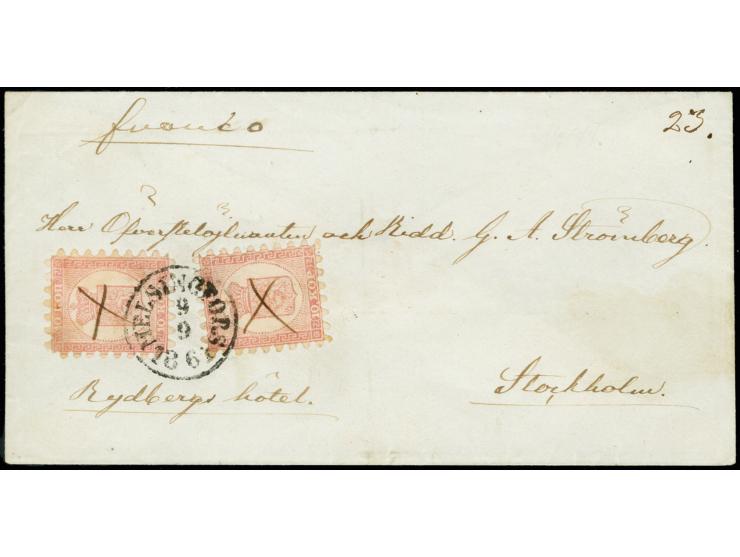 franco
23.
Herr Öfverstelöjtnanten och Ridd. G. A. Strömberg.
HELSINGFORS
9
9
1861
10. KOP.
10. KOP.
Rydbergs hôtel.
Stockholm.